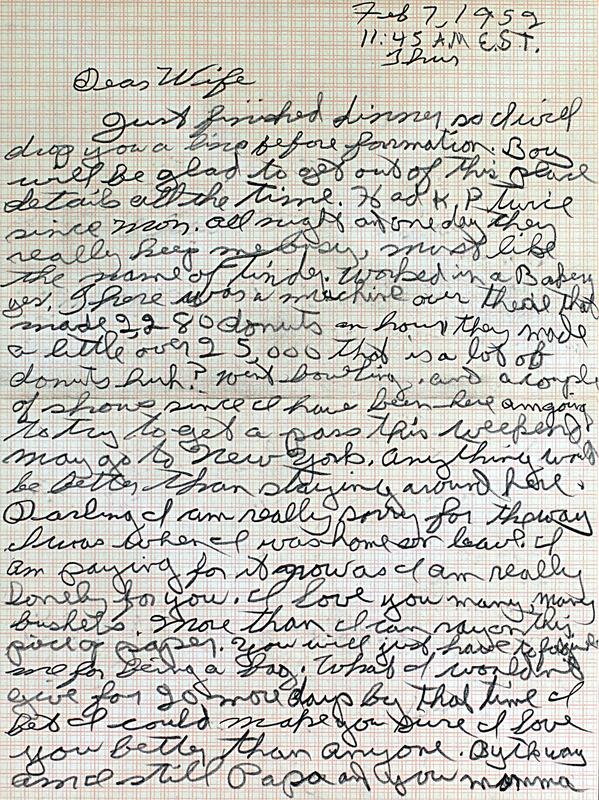 Feb 7, 1952
11:45 AM E.S.T.
Thurs
Dear Wife
Just finished dinner so I will
drop you a line before formation. Boy
will be glad to get out of this place
details all the time. Had K.P. twice
since mon. all night and one day they
really keep me busy, must like
the name of Linder. Worked in a Bakery
yes. There was a machine over there that
made 2,280 donuts an hour they made
a little over 25,000 that is a lot of
donuts huh? went bowling and a couple
of shows since I have been here am going
to try to get a pass this weekend
may go to New York. anything would
be better than staying around here.
Darling I am really sorry for the way
I was when I was home on leave. I
am paying for it now as I am really
lonely for you. I love you many, many
bushels. More than I can say on this
piece of paper. You will just have to forgive
me for being a hag. What I wouldn't
give for 20 more days by that time I
bet I could make you sure I love
you better than anyone. By the way
am I still Papa and you momma